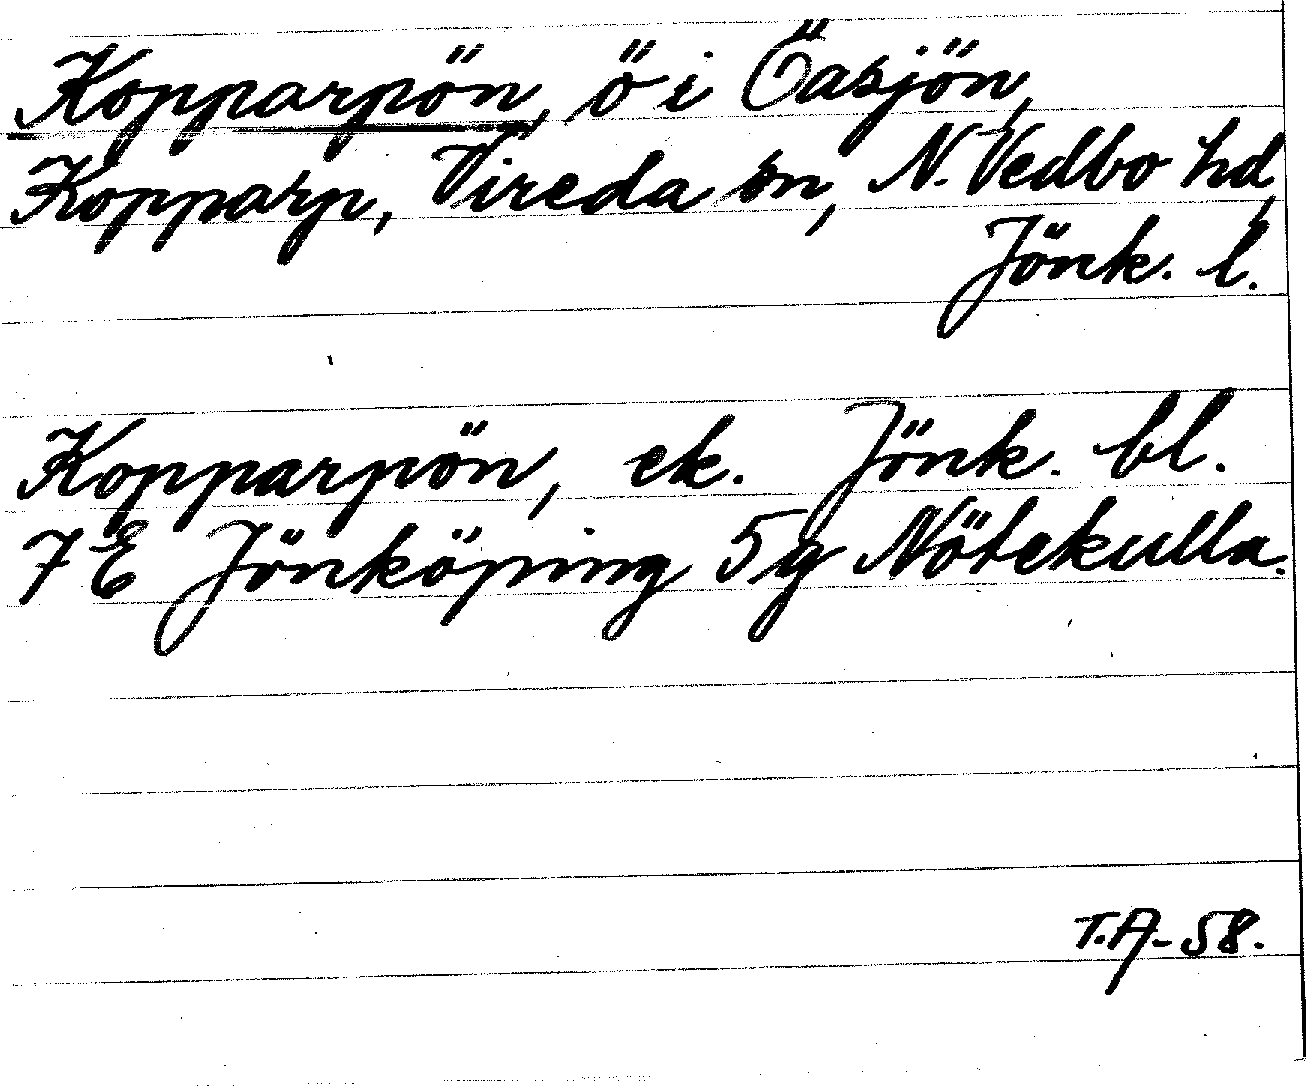 Kopparpön, ö i Öasjön,
Kopparp, Vireda sn, N. Vedbo hd,
Jönk. l.
Kopparpön, ek. Jönk. bl.
7 E Jönköping 5 g Nötekulla.
T.A-58.